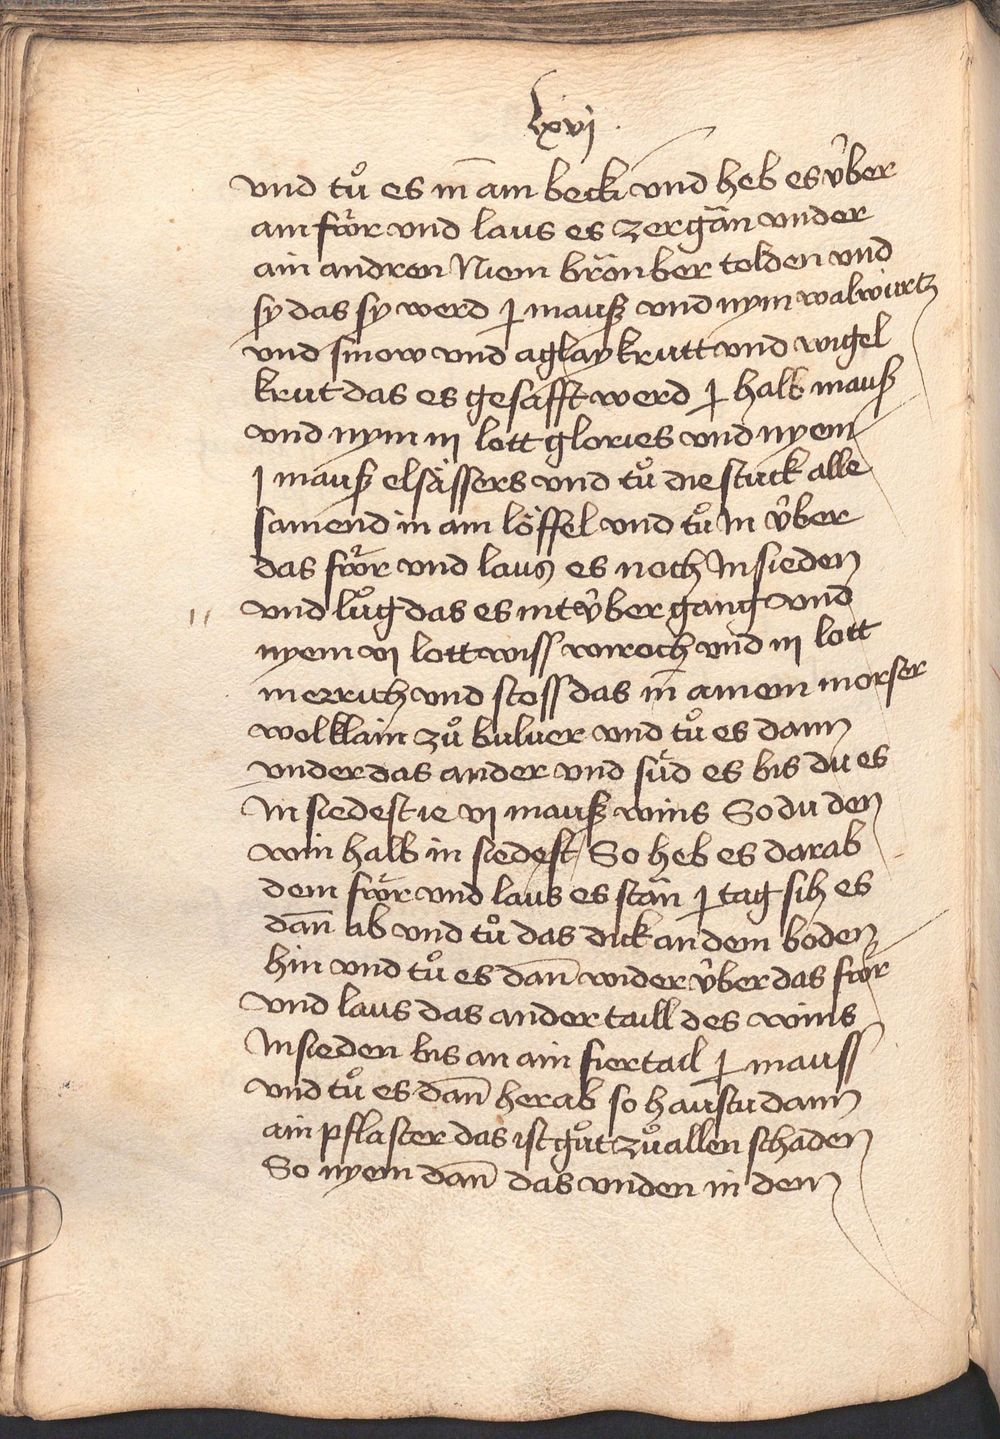 Lxvj
vnd tuͦ es in̄ ain becki vnd heb es v̂ber
ain fwͤr vnd laus es zergän vnder
ain andren Niem brönber tolden vnd
sy das sy werd j mauß vnd nym walwurtz
vnd sinow vnd aglaykrutt vnd wigel
krut das es gesäfft werd j halb mauß
vnd nym iij lott glories vnd nyem
j mauß elsässers vnd tuͦ die stuck alle
samend in ain löffel vnd tuͦ In v̂ber
das fwͤr vnd laus es noch In sieden
vnd luͦg das es nit v̂ber gang vnd
nyem vj lott wiss wiroch vnd iij lott
merrich vnd stoss das in̄ ainem morser
wol klain zuͦ buluer vnd tuͦ es dann
vnder das ander vnd süd es bis du es
In siedest ie vj mauß wins So du den
win halb in siedest So heb es darab
dem fwͤr vnd laus es stän j tag sih es
dan̄ ab vnd tuͦ das dick an dem boden
hin vnd tuͦ es dan̄ wider v̂ber das fwͤr
vnd laus das ander taill des wins
In sieden bis an ain fiertail j mauss
vnd tuͦ es dan̄ herab so haustu dann
ain pflaster das ist guͦt zuͦ allen schaden
So nyem dan̄ das vnden in dem